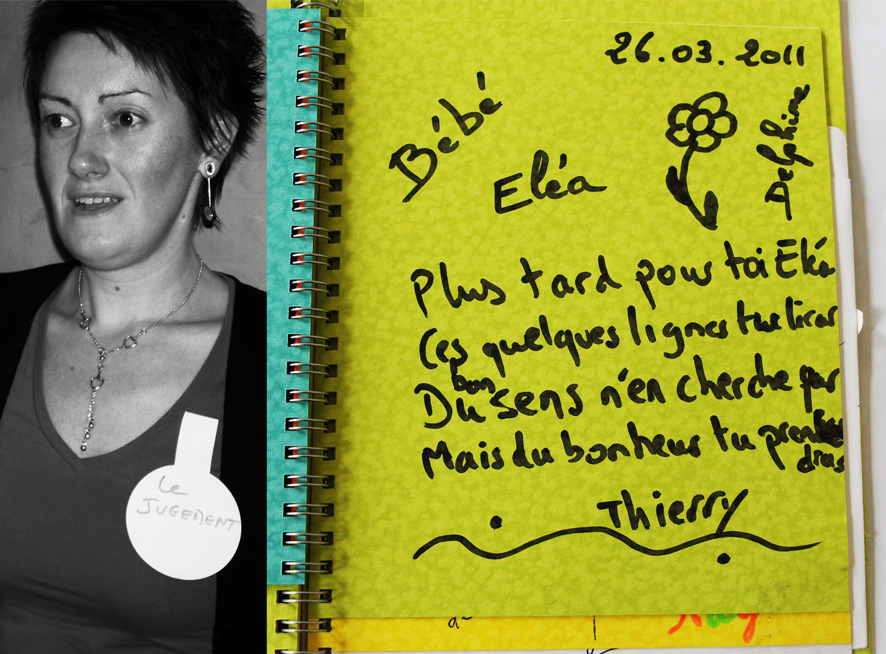 Le
JUGEMENT
26.03.2011
Bébé
Eléa
Delphine
Plus tard pour toi Eléa
Ces quelques lignes tu liras
Du bon sens n'en cherche pas
Mais du bonheur tu prendras
Thierry